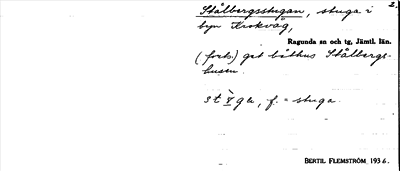 Stålbergsstugan, stuga i 2.
byn Krokvåg,
Ragunda sn och tg, Jämtl. län.
(forts.) gat båthus Stålbergs-
husen.
f. = stuga.
BERTIL FLEMSTRÖM 1936.